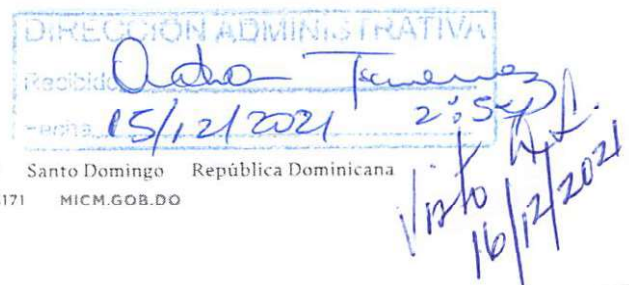 DIRECCIÓN ADMINISTRATIVA
Recibido
Fecha 15/12/2021 2:54
Santo Domingo República Dominicana
171 MICM.GOB.DO
Visto
16/12/2021